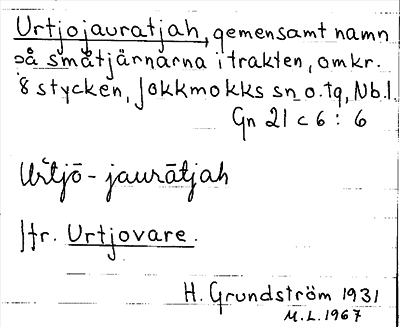 Urtjojauratjah, gemensamt namn
på småtjärnarna i trakten, omkr.
8 stycken, Jokkmokks sn o. tg, Nb. l.
Gn 21 c 6 : 6
Urtjō - jaurātjah
Jfr. Urtjovare.
H. Grundström 1931
M. L. 1967